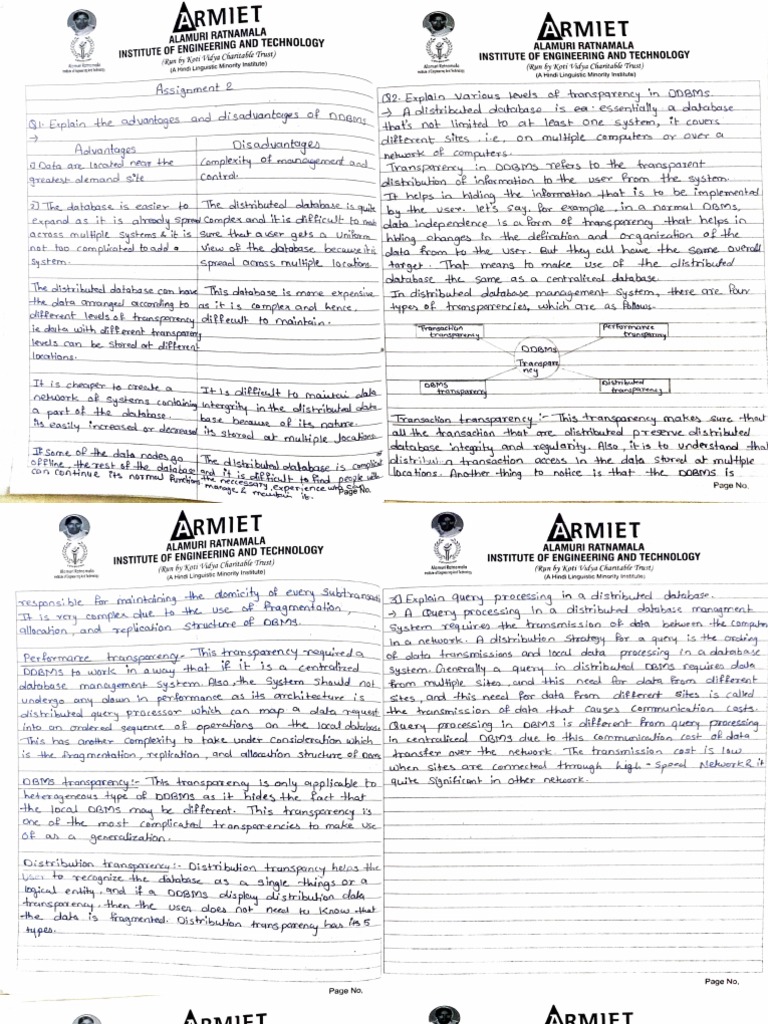 ARMIET
ALAMURI RATNAMALA
INSTITUTE OF ENGINEERING AND TECHNOLOGY
(Run by Koti Vidya Charitable Trust)
(A Hindi Linguistic Minority Institute)
Alamuri Ratnamala
Institute of Engineering and Technology
Assignment 2
Q1. Explain the advantages and disadvantages of DDBMS.
→
Advantages
1) Data are located near the
greatest demand site
2) The database is easier to
expand as it is already spread
across multiple systems & it is
not too complicated to add a
system.
The distributed database can have
the data arranged according to
different levels of transparency
ie data with different transparency
levels can be stored at different
locations.
It is cheaper to create a
network of systems containing
a part of the database.
its easily increased or decreased
If some of the data nodes go
offline, the rest of the database
can continue its normal functions
Disadvantages
Complexity of management and
control.
The distributed database is quite
complex and it is difficult to make
sure that a user gets a uniform
view of the database because it is
spread across multiple locations.
This database is more expensive
as it is complex and hence,
difficult to maintain.
It is difficult to maintain data
intergrity in the distributed data
base because of its nature.
its stored at multiple locations
The distributed database is complicated
and it is difficult to find people with
the neccessary experience who can
manage & maintain it.
Page No.
ARMIET
ALAMURI RATNAMALA
INSTITUTE OF ENGINEERING AND TECHNOLOGY
(Run by Koti Vidya Charitable Trust)
(A Hindi Linguistic Minority Institute)
Q2. Explain various levels of transparency in DDBMS.
→ A distributed database is ea. essentially a database
that's not limited to at least one system, it covers
different sites. i.e, on multiple computers or over a
network of computers.
Transparency in DDBMS refers to the transparent
distribution of information to the user from the system.
It helps in hiding the information that is to be implemented
by the user. let's say, for example, in a normal DBMS,
data independence is a form of transparency that helps in
hiding changes in the defination and organization of the
data from to the user. But they all have the same overall
target. That means to make use of the distributed
database the same as a centralized database.
In distributed database management system, there are four
types of transparencies, which are as follows.
Transaction
transparency
Performance
transparency
DDBMS
Transpare
ncy
DBMS
transparency
Distributed
transparency
Transaction transparency :- This transparency makes sure that
all the transaction that are distributed preserve distributed
database integrity and regularity. Also, it is to understand that
distribution transaction access in the data stored at multiple
locations. Another thing to notice is that the DDBMS is
Page No.
ARMIET
ALAMURI RATNAMALA
INSTITUTE OF ENGINEERING AND TECHNOLOGY
(Run by Koti Vidya Charitable Trust)
(A Hindi Linguistic Minority Institute)
Alamuri Ratnamala
Institute of Engineering and Technology
responsible for maintaining the atomicity of every subtransaction
It is very complex due to the use of fragmentation,
allocation, and replication structure of DBMS.
Performance transparency:- This transparency required a
DDBMS to work in a way that if it is a centralized
database management system. Also, the system should not
undergo any down in performance as its architecture is
distributed query processor which can map a data request
into an ordered sequence of operations on the local database
This has another complexity to take under consideration which
is the fragmentation, replication, and allocation structure of DBMS
DBMS transparency:- This transparency is only applicable to
heterogeneous type of DDBMS as it hides the fact that
the local DBMS may be different. This transparency is
one of the most complicated transparencies to make use
of as a generalization.
Distribution transparency:- Distribution transparncy helps the
user to recognize the database as a single things or a
logical entity, and if a DDBMS display distribution data
transparency, then the user does not need to know that
the data is fragmented. Distribution transparency has its 5
types.
Page No.
ARMIET
ALAMURI RATNAMALA
INSTITUTE OF ENGINEERING AND TECHNOLOGY
(Run by Koti Vidya Charitable Trust)
(A Hindi Linguistic Minority Institute)
3) Explain query processing in a distributed database.
→ A Query processing in a distributed database managment
System requires the transmission of data between the computers
in a network. A distribution strategy for a query is the ordering
of data transmissions and local data processing in a database
system. Generally a query in distributed DBMS requires data
from multiple sites, and this need for data from different
sites, and this need for data from different sites is called
the transmission of data that causes communication costs.
Query processing in DBMS is different from query processing
in centralized DBMS due to this communication cost of data
transfer over the network. The transmission cost is low
when sites are connected through high-Speed Network & it
quite significant in other network.
Page No,
ARMIET
ARMIET